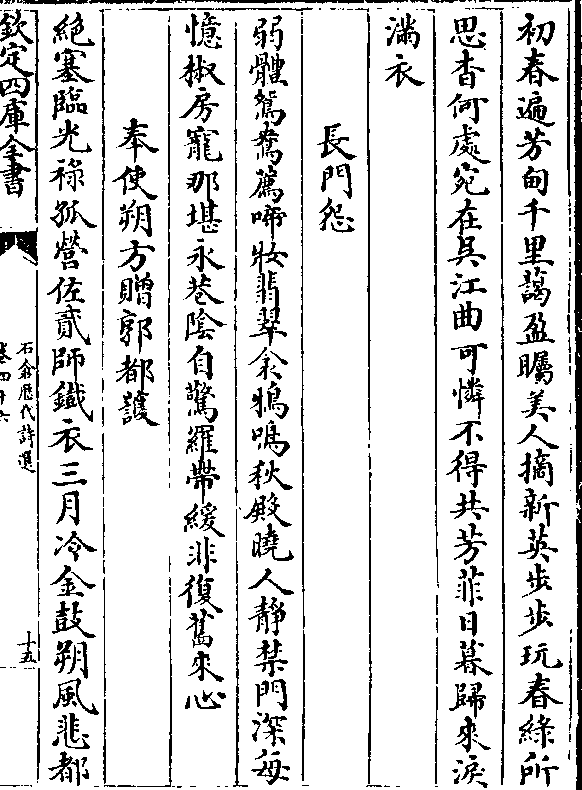 初春遍芳甸千里藹盈矚美人摘新英步步玩春綠所
思杳何處宛在吳江曲可憐不得共芳菲日暮歸來淚
滿衣
長門怨
弱體鴛鴦薦啼妝翡翠衾鴉鳴秋殿曉人靜禁門深每
憶椒房寵那堪永巷陰自驚羅帶緩非復舊來心
奉使朔方贈郭都護
絶塞臨光祿孤營佐貳師鐵衣三月冷金鼓朔風悲都
欽定四庫全書
石倉歷代詩選
卷四十六
十五